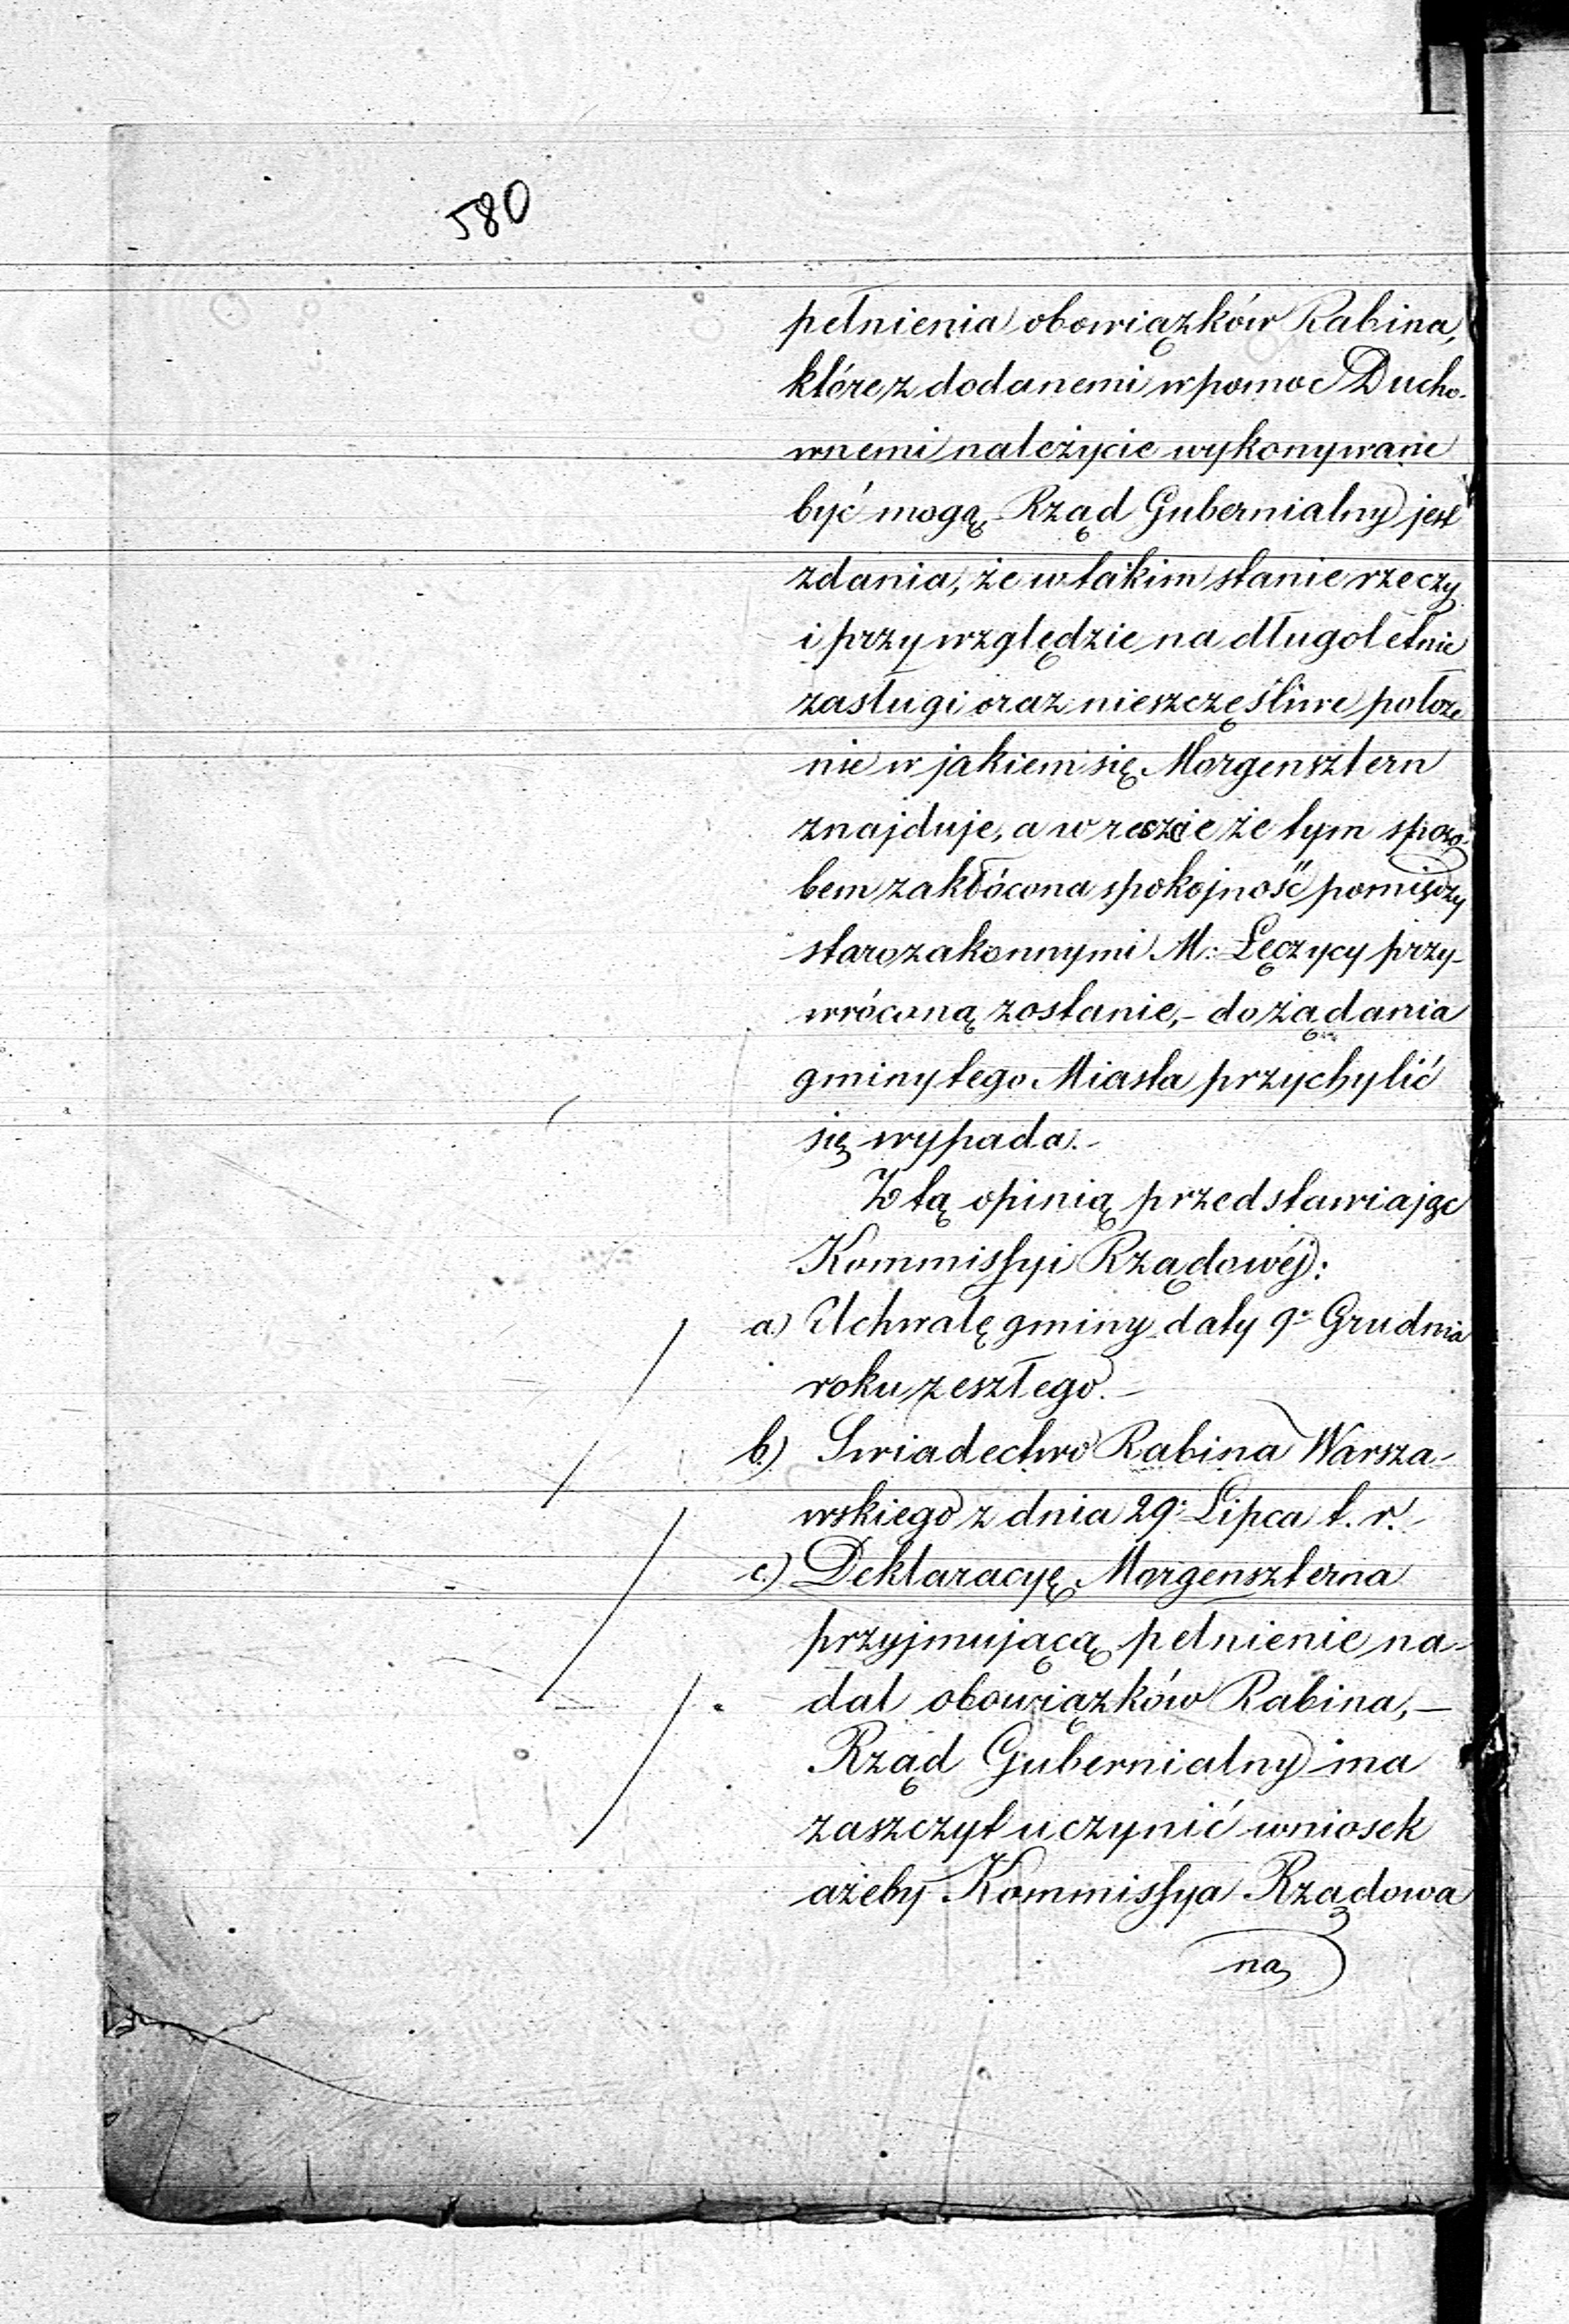 580
pełnienia obowiązków Rabina,
które z dodanemi w pomoc Ducho-
wnemi należycie wykonywane
być mogą. Rząd Gubernialny jest
zdania, że w takim stanie rzeczy
i przy względzie na długoletnie
zasługi oraz nieszczęśliwe położe
nie w jakiem się Morgensztern
znajduje, a wreszcie że tym sposo-
bem zakłócona spokojność pomiędzy
starozakonnymi M: Łęczycy przy-
wróconą zostanie, - do żądania
gminy tego Miasta przychylić
się wypada. -
Z tą opinią przedstawiając
Kommissyi Rządowéj:
a) Uchwałę gminy daty 9o Grudnia
roku zeszłego. -
b) Swiadectwo Rabina Warsza-
wskiego z dnia 29: Lipca t. r. -
c.) Deklaracyę Morgenszterna
przyjmującą pełnienie na-
dal obowiązków Rabina, -
Rząd Gubernialny ma
zaszczyt uczynić wniosek
ażeby Kommissya Rządowa
na